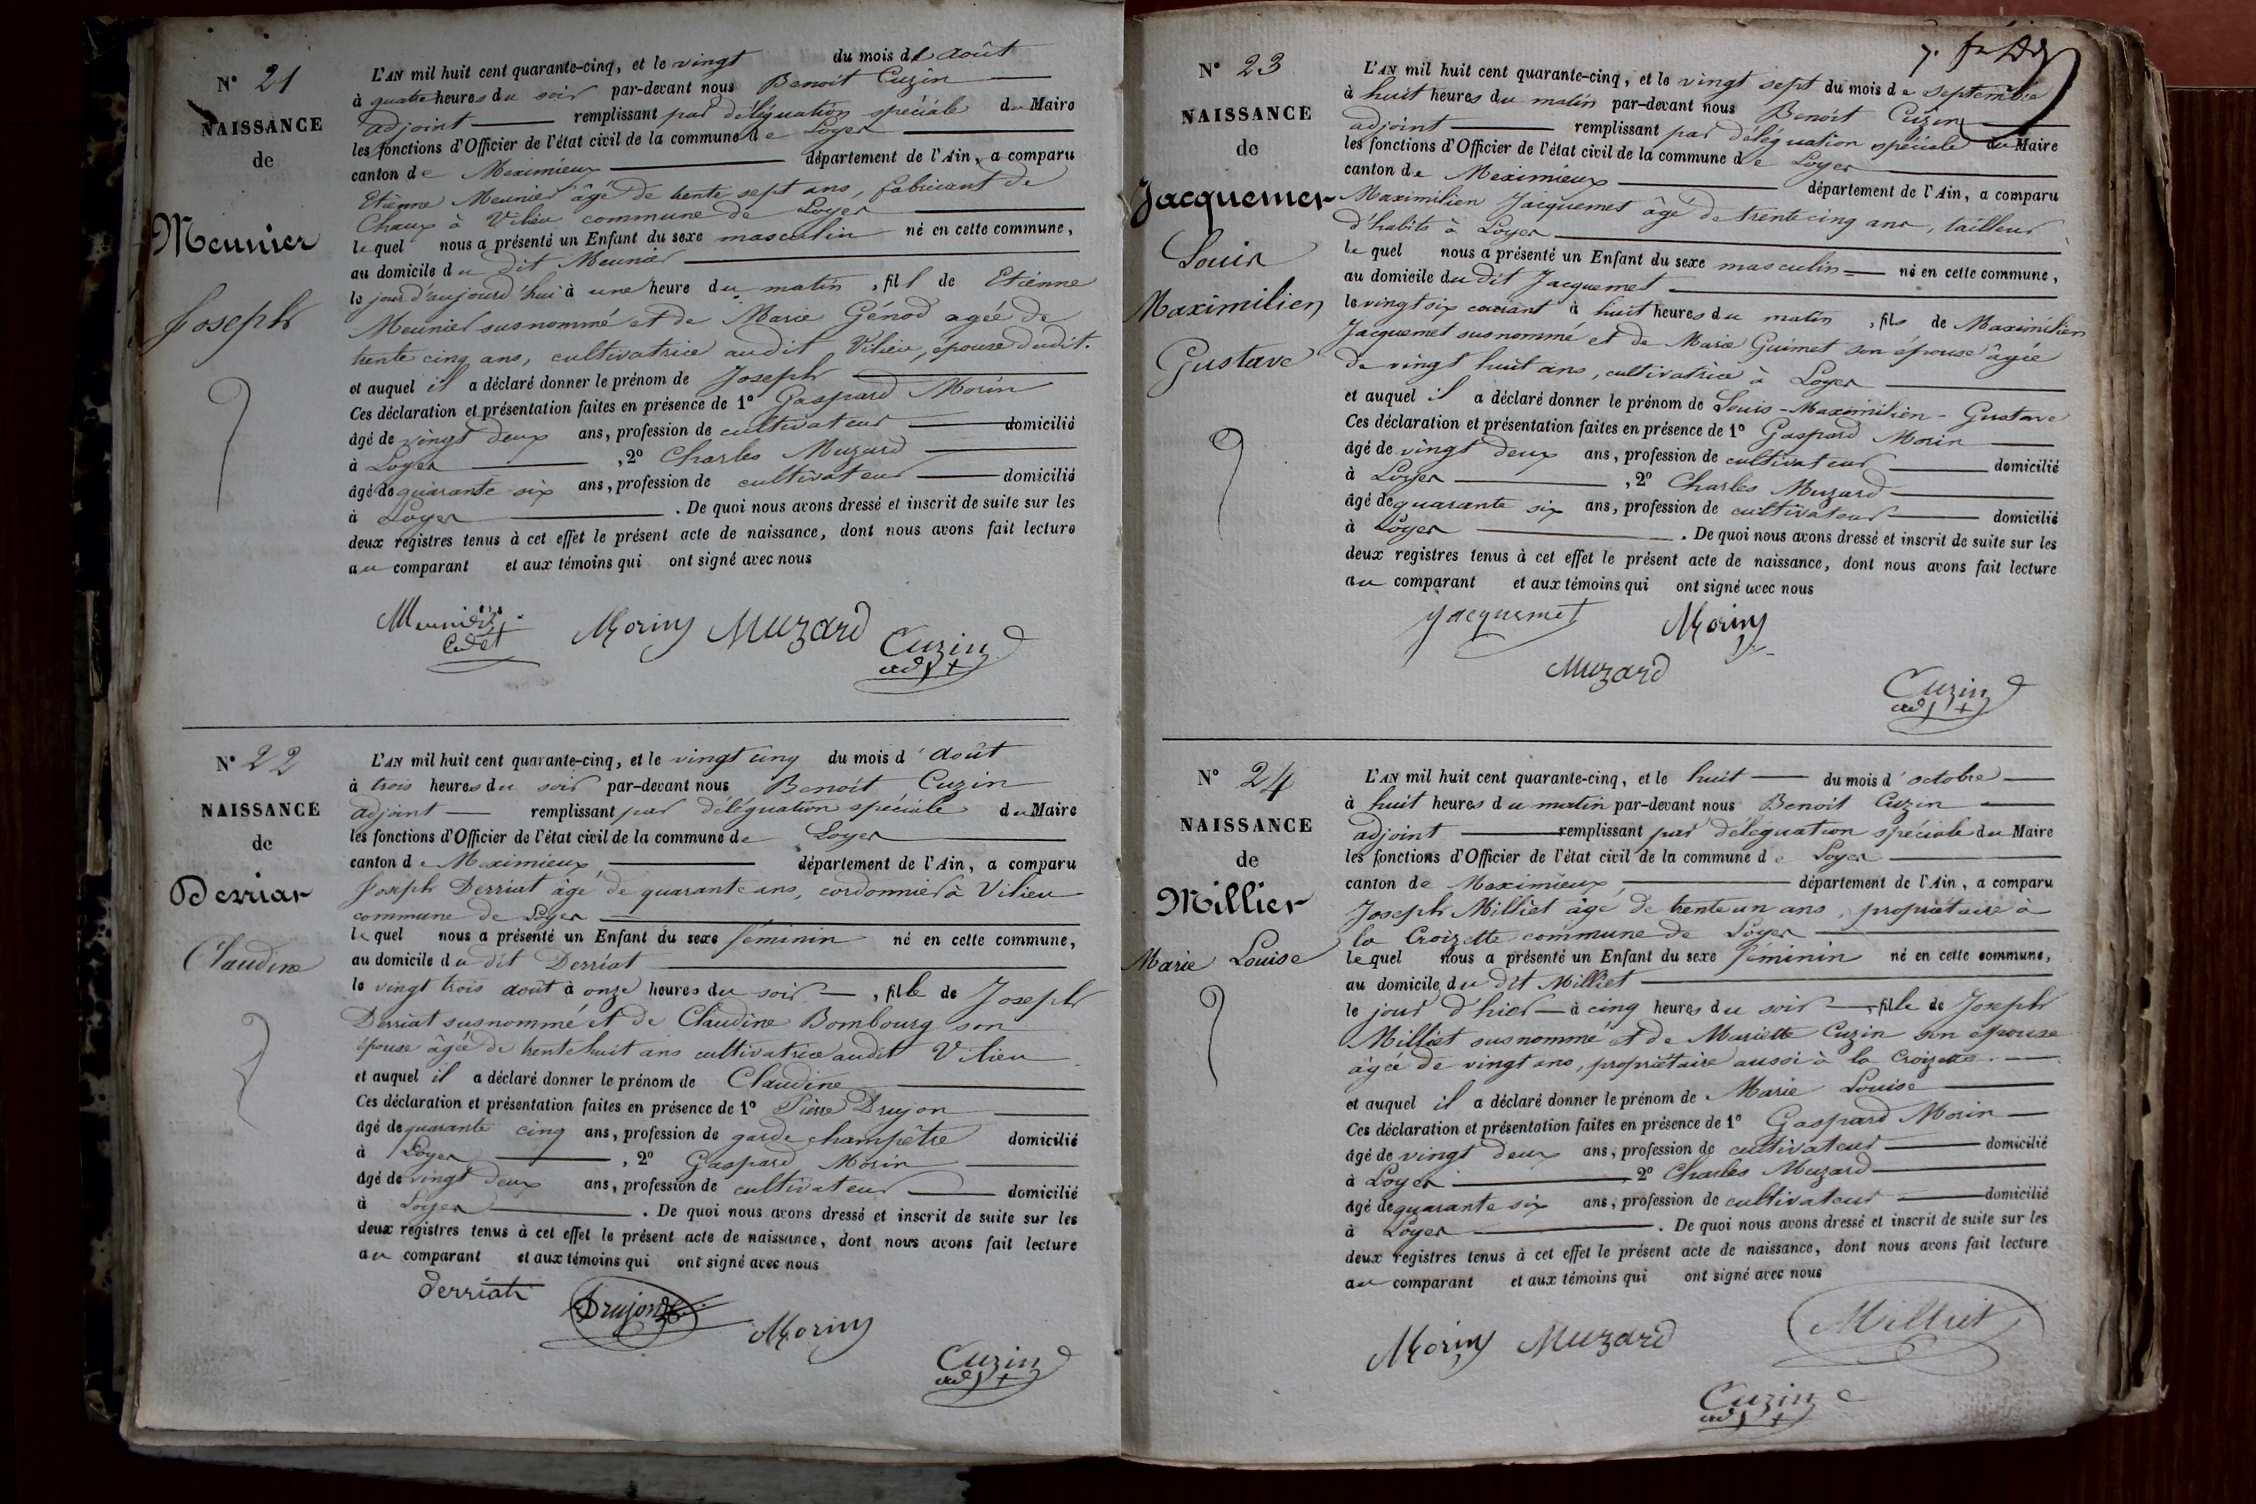 N° 21
NAISSANCE
de
Meunier
Joseph
L'AN mil huit cent quarante-cinq, et le vingt du mois de août
à quatre heures du soir par-devant nous Benoit Cuzin
adjoint remplissant par déléguation spéciale du Maire
les fonctions d'Officier de l'état civil de la commune de Loyes
canton de Meximieux département de l'Ain, a comparu
Etienne Meunier âgé de trente sept ans, fabricant de
Chaux à Vilieu commune de Loyes
lequel nous a présenté un Enfant du sexe masculin né en cette commune,
au domicile du dit Meunier
le jour d'aujourd'hui à une heure du matin, fils de Etienne
Meunier susnommé et de Marie Génod agée de
trente cinq ans, cultivatrice audit Vilieu, épouse dudit.
et auquel il a déclaré donner le prénom de Joseph
Ces déclaration et présentation faites en présence de 1° Gaspard Morin
âgé de vingt deux ans, profession de cultivateur domicilié
à Loyes, 2° Charles Muzard
âgé de quarante six ans, profession de cultivateur domicilié
à Loyes. De quoi nous avons dressé et inscrit de suite sur les
deux registres tenus à cet effet le présent acte de naissance, dont nous avons fait lecture
au comparant et aux témoins qui ont signé avec nous
Meunier
Cadet
Morin Muzard Cuzin
adjt
N° 22
NAISSANCE
de
Derriat
Claudine
L'AN mil huit cent quarante-cinq, et le vingt cinq du mois d'août
à trois heures du soir par-devant nous Benoit Cuzin
adjoint remplissant par déléguation spéciale du Maire
les fonctions d'Officier de l'état civil de la commune de Loyes
canton de Meximieux département de l'Ain, a comparu
Joseph Derriat âgé de quarante ans, cordonnier à Vilieu
commune de Loyes
lequel nous a présenté un Enfant du sexe féminin né en cette commune,
au domicile du dit Derriat
le vingt trois août à onze heures du soir, fille de Joseph
Derriat susnommé et de Claudine Bombourg son
épouse âgée de trente huit ans cultivatrice audit Vilieu
et auquel il a déclaré donner le prénom de Claudine
Ces déclaration et présentation faites en présence de 1° Pierre Drujon
âgé de quarante cinq ans, profession de garde champêtre domicilié
à Loyes, 2° Gaspard Morin
âgé de vingt deux ans, profession de cultivateur domicilié
à Loyes. De quoi nous avons dressé et inscrit de suite sur les
deux registres tenus à cet effet le présent acte de naissance, dont nous avons fait lecture
au comparant et aux témoins qui ont signé avec nous
Derriat Drujon Morin
Cuzin
adjt
N° 23
NAISSANCE
de
Jacquemet
Louis
Maximilien
Gustave
L'AN mil huit cent quarante-cinq, et le vingt sept du mois de septembre
à huit heures du matin par-devant nous Benoit Cuzin
adjoint remplissant par déléguation spéciale du Maire
les fonctions d'Officier de l'état civil de la commune de Loyes
canton de Meximieux département de l'Ain, a comparu
Maximilien Jacquemet âgé de trente cinq ans, tailleur
d'habits à Loyes
lequel nous a présenté un Enfant du sexe masculin né en cette commune,
au domicile du dit Jacquemet
le vingt six courant à huit heures du matin, fils de Maximilien
Jacquemet susnommé et de Marie Guimet son épouse âgée
de vingt huit ans, cultivatrice à Loyes
et auquel il a déclaré donner le prénom de Louis-Maximilien-Gustave
Ces déclaration et présentation faites en présence de 1° Gaspard Morin
âgé de vingt deux ans, profession de cultivateur domicilié
à Loyes, 2° Charles Muzard
âgé de quarante six ans, profession de cultivateur domicilié
à Loyes. De quoi nous avons dressé et inscrit de suite sur les
deux registres tenus à cet effet le présent acte de naissance, dont nous avons fait lecture
au comparant et aux témoins qui ont signé avec nous
Jacquemet Morin
Muzard
Cuzin
adjt
N° 24
NAISSANCE
de
Milliet
Marie Louise
L'AN mil huit cent quarante-cinq, et le huit du mois d'octobre
à huit heures du matin par-devant nous Benoit Cuzin
adjoint remplissant par déléguation spéciale du Maire
les fonctions d'Officier de l'état civil de la commune de Loyes
canton de Meximieux département de l'Ain, a comparu
Joseph Milliet âgé de trente un ans, propriétaire à
la Croizette commune de Loyes
lequel nous a présenté un Enfant du sexe féminin né en cette commune,
au domicile du dit Milliet
le jour d'hier à cinq heures du soir, fille de Joseph
Milliet susnommé et de Mariette Cuzin son épouse
âgée de vingt ans, propriétaire aussi à la Croizette.
et auquel il a déclaré donner le prénom de Marie Louise
Ces déclaration et présentation faites en présence de 1° Gaspard Morin
âgé de vingt deux ans, profession de cultivateur domicilié
à Loyes 2° Charles Muzard
âgé de quarante six ans, profession de cultivateur domicilié
à Loyes. De quoi nous avons dressé et inscrit de suite sur les
deux registres tenus à cet effet le présent acte de naissance, dont nous avons fait lecture
au comparant et aux témoins qui ont signé avec nous
Morin Muzard Milliet
Cuzin
adjt